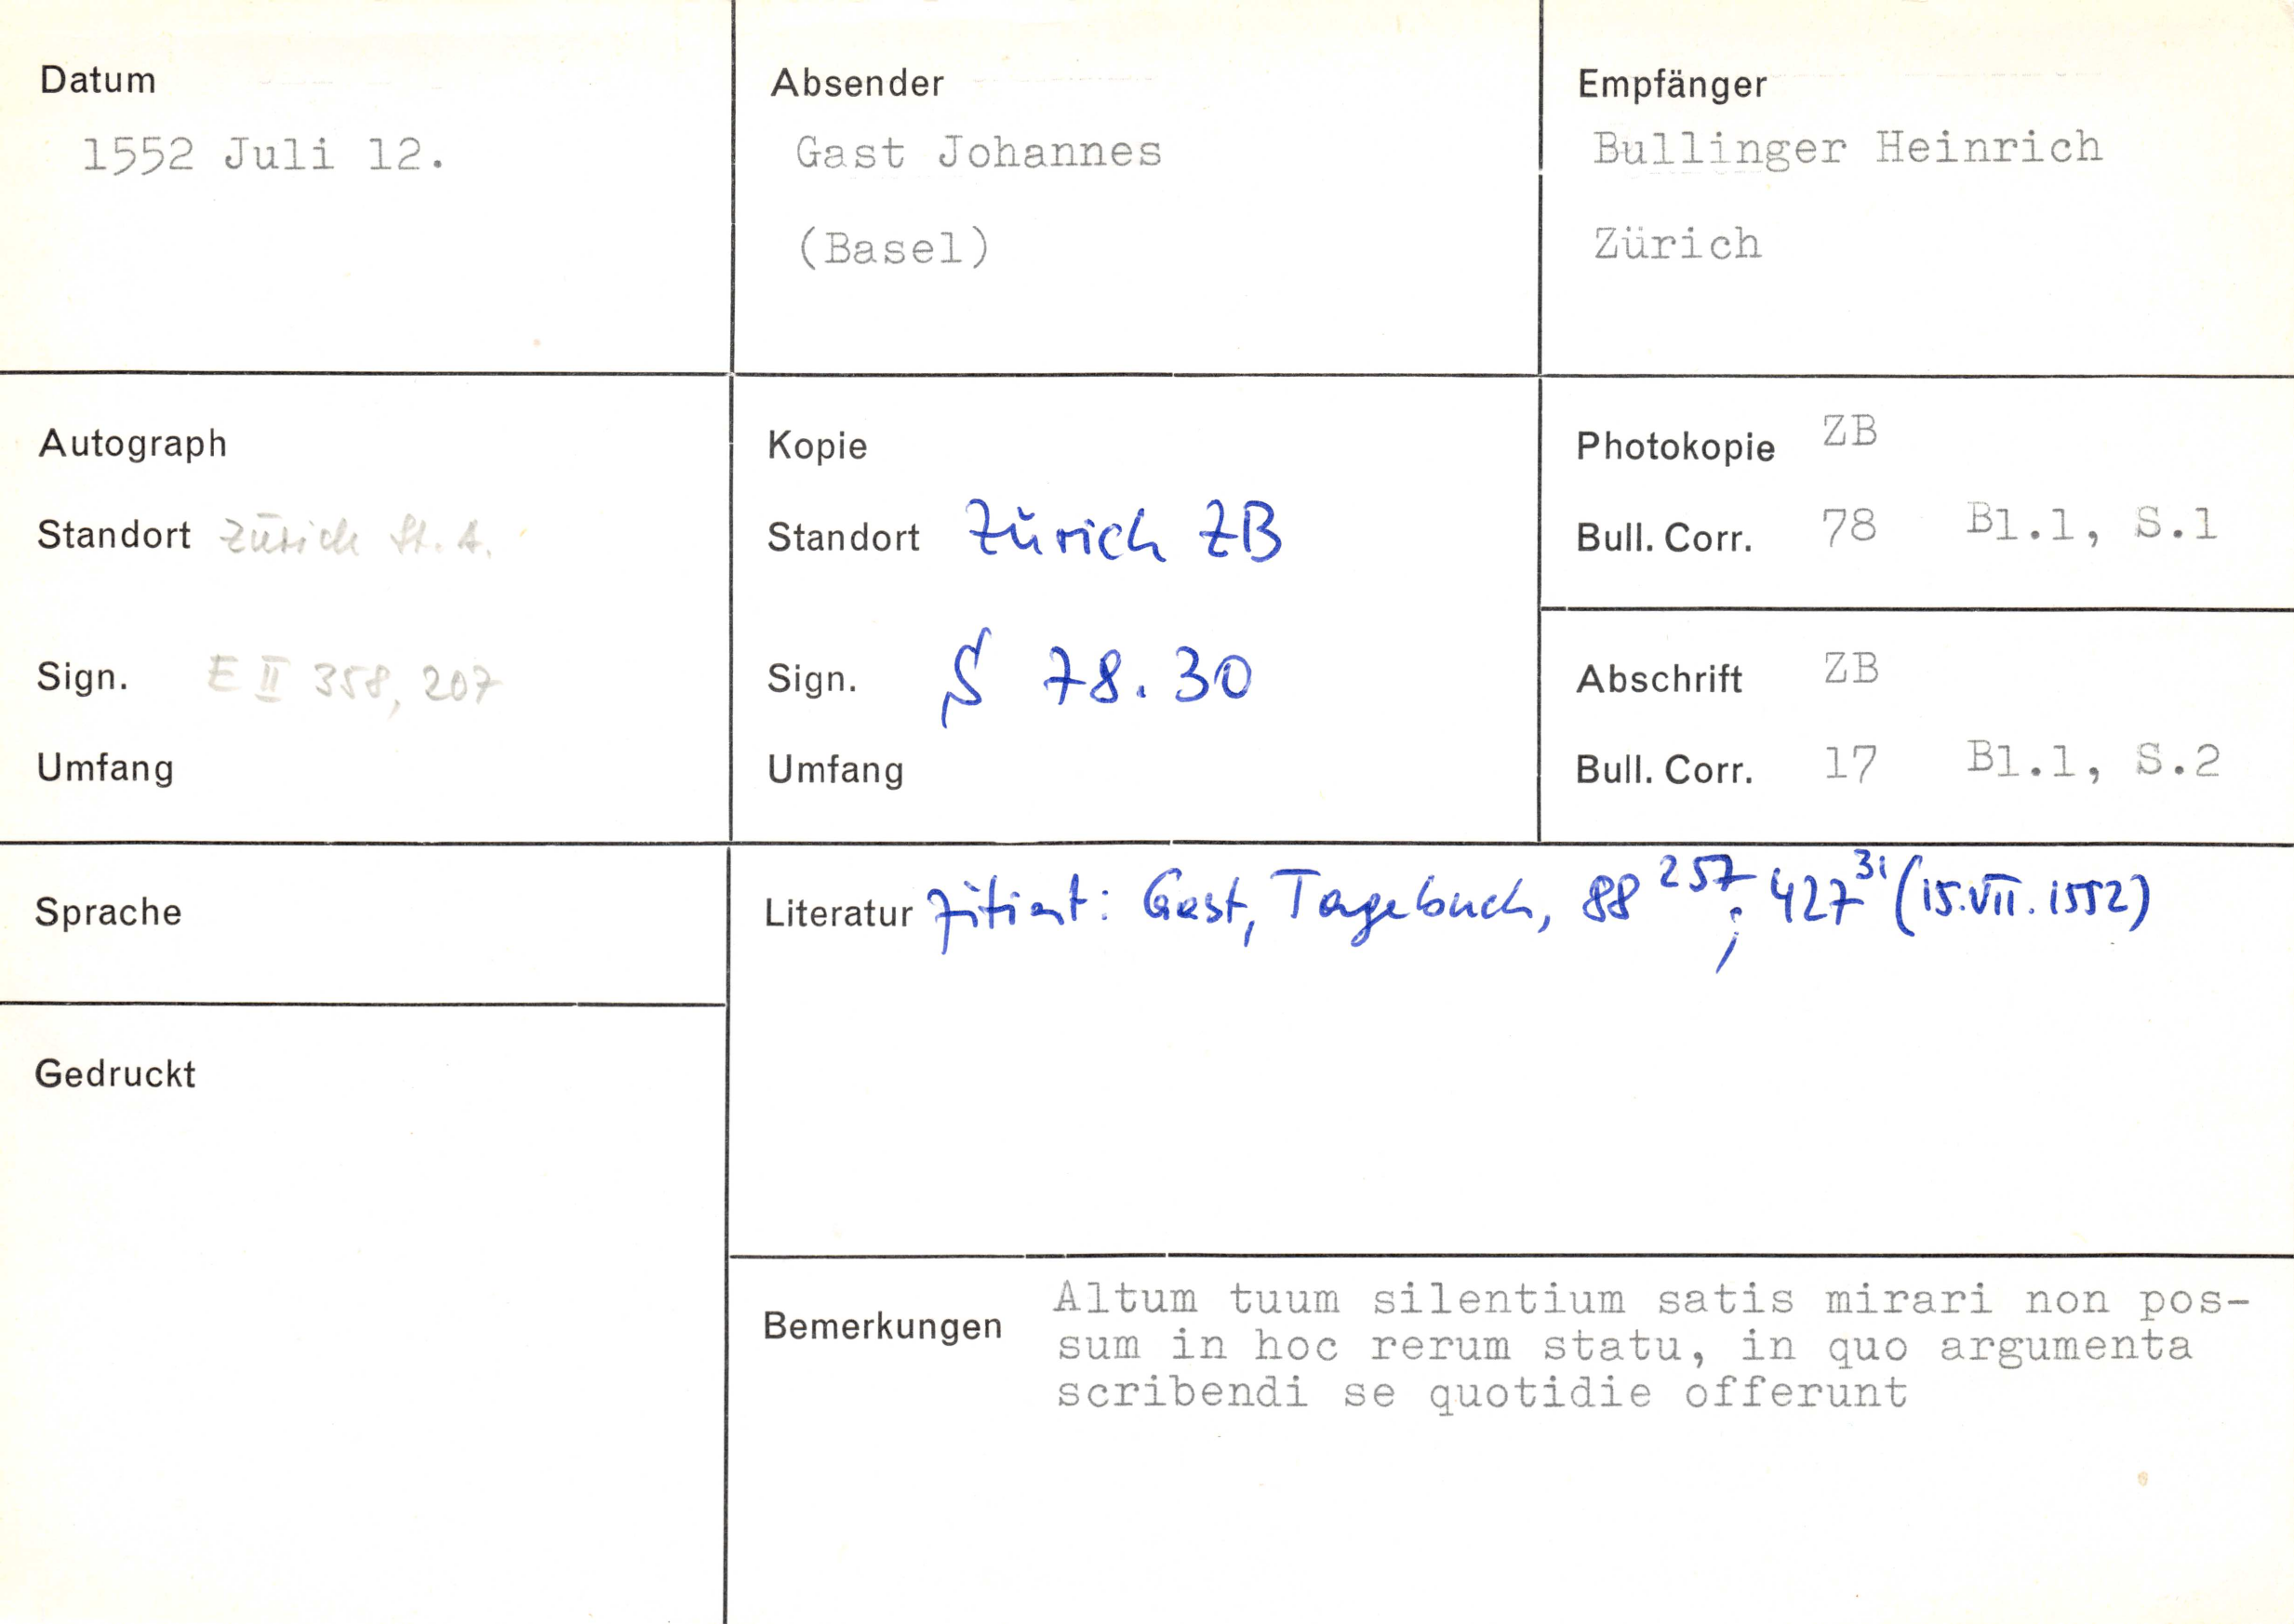 Datum
1552 Juli 12.
Absender
Gast Johannes
(Basel)
Empfänger
Bullinger Heinrich
Zürich
Autograph
Standort Zürich St. A.
Sign. E II 358, 207
Umfang
Kopie
Standort Zürich ZB
Sign. S 78.30
Umfang
Photokopie ZB
Bull. Corr. 78 Bl.1, S.1
Abschrift ZB
Bull. Corr. 17 Bl.1, S.2
Sprache
Gedruckt
Literatur zitiert: Gast, Tagebuch, 88 257; 427 31 (15.VII.1552)
Bemerkungen
Altum tuum silentium satis mirari non pos-
sum in hoc rerum statu, in quo argumenta
scribendi se quotidie offerunt